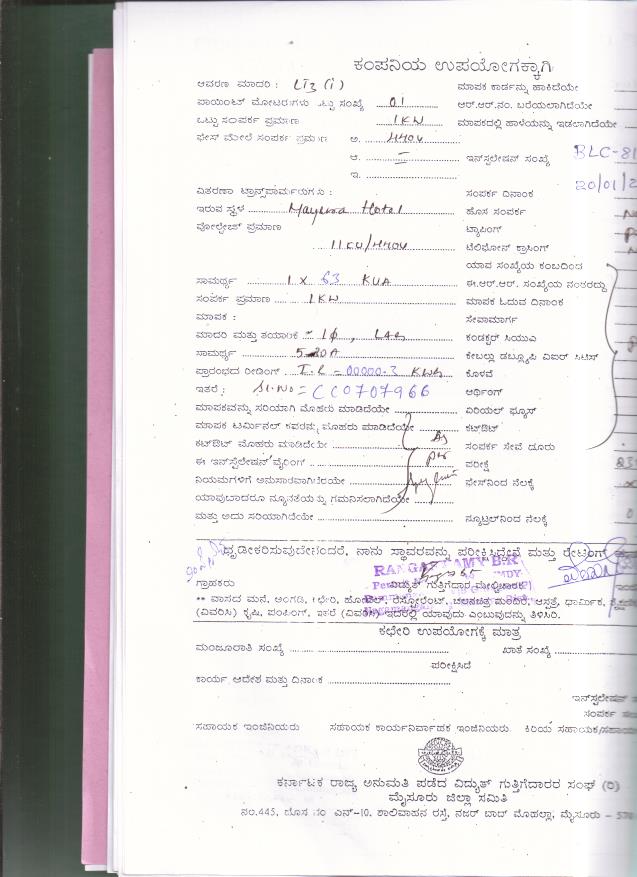 ಕಂಪನಿಯ ಉಪಯೋಗಕ್ಕಾಗಿ
ಆವರಣ ಮಾದರಿ : LT3 (i) ಮಾಪಕ ಕಾರ್ಡನ್ನು ಹಾಕಿದೆಯೇ
ಪಾಯಿಂಟ್ ಮೋಟರುಗಳು ಒಟ್ಟು ಸಂಖ್ಯೆ 01 ಆರ್.ಆರ್.ನಂ. ಬರೆಯಲಾಗಿದೆಯೇ
ಒಟ್ಟು ಸಂಪರ್ಕ ಪ್ರಮಾಣ 1KW ಮಾಪಕದಲ್ಲಿ ಹಾಳೆಯನ್ನು ಇಡಲಾಗಿದೆಯೇ
ಫೇಸ್ ಮೇಲೆ ಸಂಪರ್ಕ ಪ್ರಮಾಣ ಅ. 440V
ಆ. ಇನ್‌ಸ್ಟಲೇಷನ್ ಸಂಖ್ಯೆ BLC-81
ಇ. 20/01/2
ವಿತರಣಾ ಟ್ರಾನ್ಸ್‌ಫಾರ್ಮರುಗಳು : ಸಂಪರ್ಕ ದಿನಾಂಕ
ಇರುವ ಸ್ಥಳ Mayura Hotel ಹೊಸ ಸಂಪರ್ಕ
ವೋಲ್ಟೇಜ್ ಪ್ರಮಾಣ ಟ್ಯಾಪಿಂಗ್
11KV/440V ಟೆಲಿಫೋನ್ ಕ್ರಾಸಿಂಗ್
ಯಾವ ಸಂಖ್ಯೆಯ ಕಂಬದಿಂದ
ಸಾಮರ್ಥ್ಯ 1 X 63 KVA ಈ.ಆರ್.ಆರ್. ಸಂಖ್ಯೆಯ ನಂತರದ್ದು
ಸಂಪರ್ಕ ಪ್ರಮಾಣ 1KW ಮಾಪಕ ಓದುವ ದಿನಾಂಕ
ಮಾಪಕ : ಸೇವಾಮಾರ್ಗ
ಮಾದರಿ ಮತ್ತು ತಯಾರಿಕೆ 1φ, ಕಂಡಕ್ಟರ್ ಸಿಯುಎ
ಸಾಮರ್ಥ್ಯ 5-20A ಕೇಬಲ್ಲು ಡಬ್ಲ್ಯೂಪಿ ವೈರ್
ಪ್ರಾರಂಭದ ರೀಡಿಂಗ್ I.R = 00000.3 KWh ಕೊಳವೆ
ಇತರೆ : Sl.No = CC0707966 ಅರ್ಥಿಂಗ್
ಮಾಪಕವನ್ನು ಸರಿಯಾಗಿ ಮೊಹರು ಮಾಡಿದೆಯೇ ಏರಿಯಲ್ ಫ್ಯೂಸ್
ಮಾಪಕ ಟರ್ಮಿನಲ್ ಕವರನ್ನು ಮೊಹರು ಮಾಡಿದೆಯೇ ಕಟ್‌ಔಟ್
ಕಟ್‌ಔಟ್ ಮೊಹರು ಮಾಡಿದೆಯೇ As ಸಂಪರ್ಕ ಸೇವೆ ದೂರು
ಈ ಇನ್‌ಸ್ಟಲೇಷನ್ ವೈರಿಂಗ್ per ಪರೀಕ್ಷೆ
ನಿಯಮಗಳಿಗೆ ಅನುಸಾರವಾಗಿದೆಯೇ ಫೇಸ್‌ನಿಂದ ನೆಲಕ್ಕೆ
ಯಾವುದಾದರೂ ನ್ಯೂನತೆಯನ್ನು ಗಮನಿಸಲಾಗಿದೆಯೇ
ಮತ್ತು ಅದು ಸರಿಯಾಗಿದೆಯೇ ನ್ಯೂಟ್ರಲ್‌ನಿಂದ ನೆಲಕ್ಕೆ
ದೃಢೀಕರಿಸುವುದೇನೆಂದರೆ, ನಾನು ಸ್ಥಾವರವನ್ನು ಪರೀಕ್ಷಿಸಿದ್ದೇನೆ ಮತ್ತು ರೇಟಿಂಗ್
RANGASWAMY B.K
ಗ್ರಾಹಕರು ವಿದ್ಯುತ್ ಗುತ್ತಿಗೆದಾರ ಮೇಲ್ವಿಚಾರಕ
** ವಾಸದ ಮನೆ, ಅಂಗಡಿ, ಕಛೇರಿ, ಹೋಟೆಲ್, ರೆಸ್ಟೋರೆಂಟ್, ಚಲನಚಿತ್ರ ಮಂದಿರ, ಆಸ್ಪತ್ರೆ, ಧಾರ್ಮಿಕ,
(ವಿವರಿಸಿ) ಕೃಷಿ, ಪಂಪಿಂಗ್, ಇತರೆ (ವಿವರಿಸಿ) ಇದರಲ್ಲಿ ಯಾವುದು ಎಂಬುವುದನ್ನು ತಿಳಿಸಿರಿ.
ಕಛೇರಿ ಉಪಯೋಗಕ್ಕೆ ಮಾತ್ರ
ಮಂಜೂರಾತಿ ಸಂಖ್ಯೆ ಖಾತೆ ಸಂಖ್ಯೆ
ಪರೀಕ್ಷಿಸಿದೆ
ಕಾರ್ಯ ಆದೇಶ ಮತ್ತು ದಿನಾಂಕ
ಇನ್‌ಸ್ಟಲೇಷನ್
ಸಂಪರ್ಕ
ಸಹಾಯಕ ಇಂಜಿನಿಯರು ಸಹಾಯಕ ಕಾರ್ಯನಿರ್ವಾಹಕ ಇಂಜಿನಿಯರು ಕಿರಿಯ ಸಹಾಯಕ/ಸಹಾಯಕ
ಕರ್ನಾಟಕ ರಾಜ್ಯ ಅನುಮತಿ ಪಡೆದ ವಿದ್ಯುತ್ ಗುತ್ತಿಗೆದಾರರ ಸಂಘ (ರಿ)
ಮೈಸೂರು ಜಿಲ್ಲಾ ಸಮಿತಿ
ನಂ.445, ಹೊಸ ನಂ ಎನ್-10, ಶಾಲಿವಾಹನ ರಸ್ತೆ, ನಜರ್ ಬಾದ್ ಮೊಹಲ್ಲಾ, ಮೈಸೂರು - 570